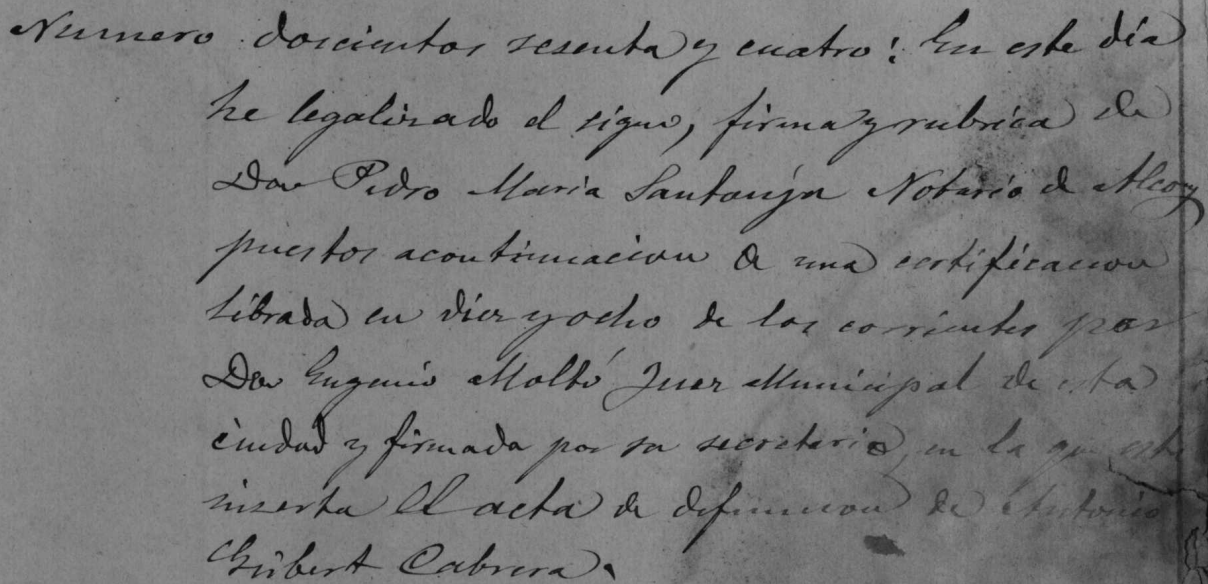 Numero doscientos sesenta y cuatro: En este día
he legalizado el signo, firma y rubrica de
Don Pedro Maria Santonja Notario de Alcoy
puestos acontinuacion de una certificacion
librada en diez y ocho de los corrientes por
Don Eugenio Moltó Juez Municipal de esta
ciudad y firmada por su secretario, en la que está
inserta el acta de defuncion de Antonio
Gisbert Cabrera.